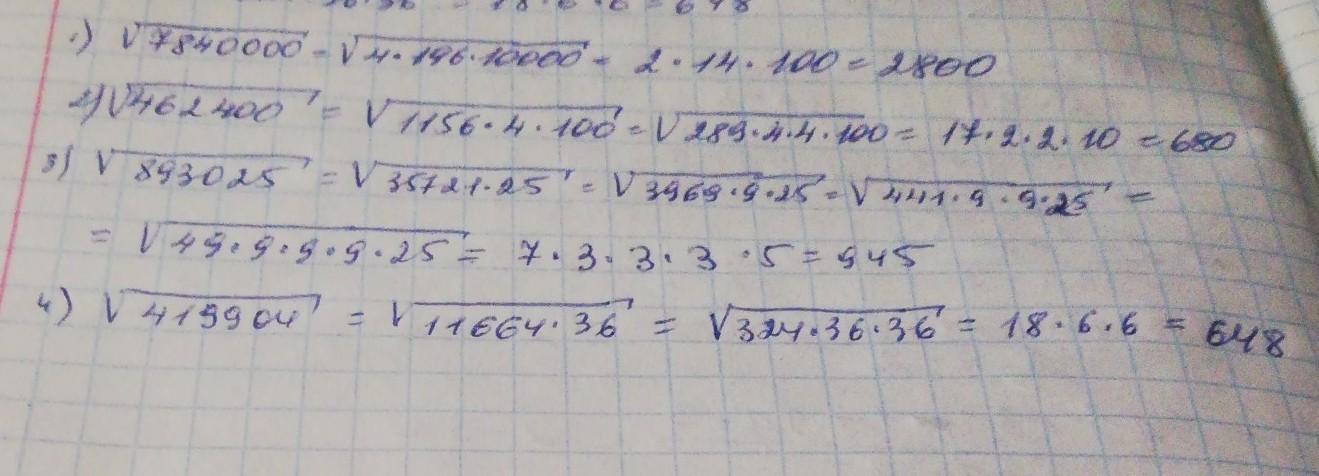 36 = 18·6·6 = 648
1) √7840000 = √4·196·10000 = 2·14·100 = 2800
2) √462400 = √1156·4·100 = √289·4·4·100 = 17·2·2·10 = 680
3) √893025 = √35721·25 = √3969·9·25 = √441·9·9·25 =
= √49·9·9·9·25 = 7·3·3·3·5 = 945
4) √419904 = √11664·36 = √324·36·36 = 18·6·6 = 648